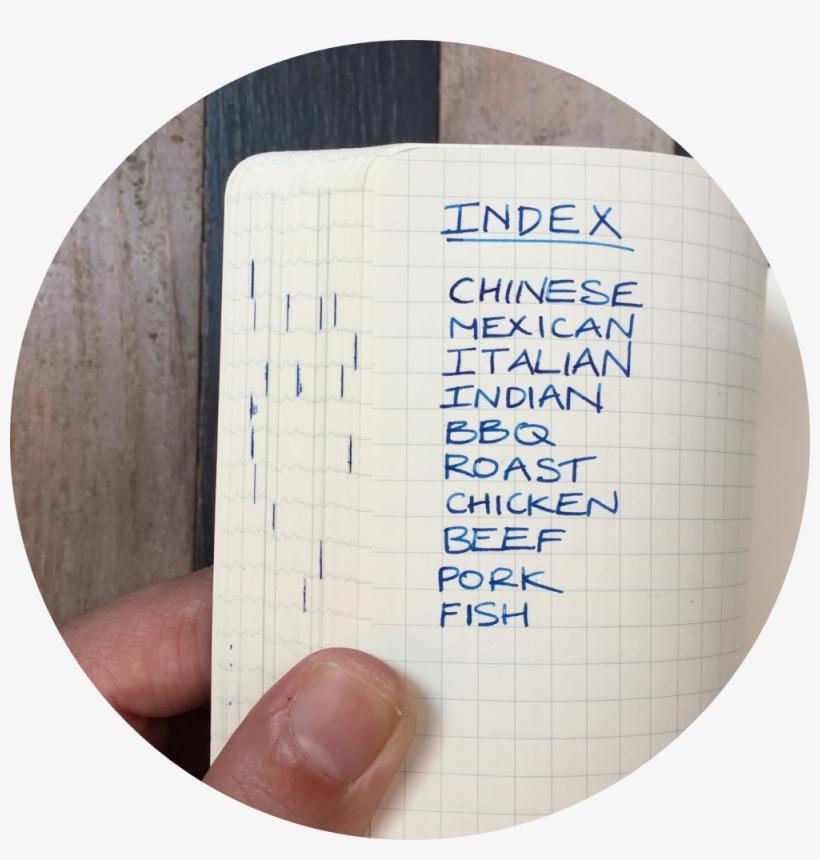 INDEX
CHINESE
MEXICAN
ITALIAN
INDIAN
BBQ
ROAST
CHICKEN
BEEF
PORK
FISH